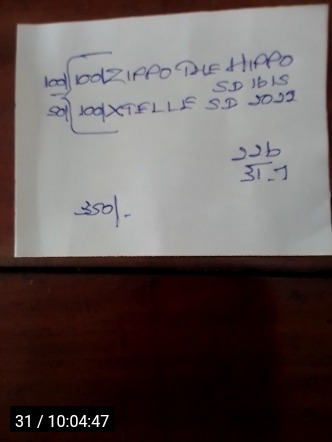 100/ 100/ ZIPPO THE HIPPO
SD 1615
50/ 100/ XTELLE SD 2022
226
31.7
350/-
31 / 10:04:47